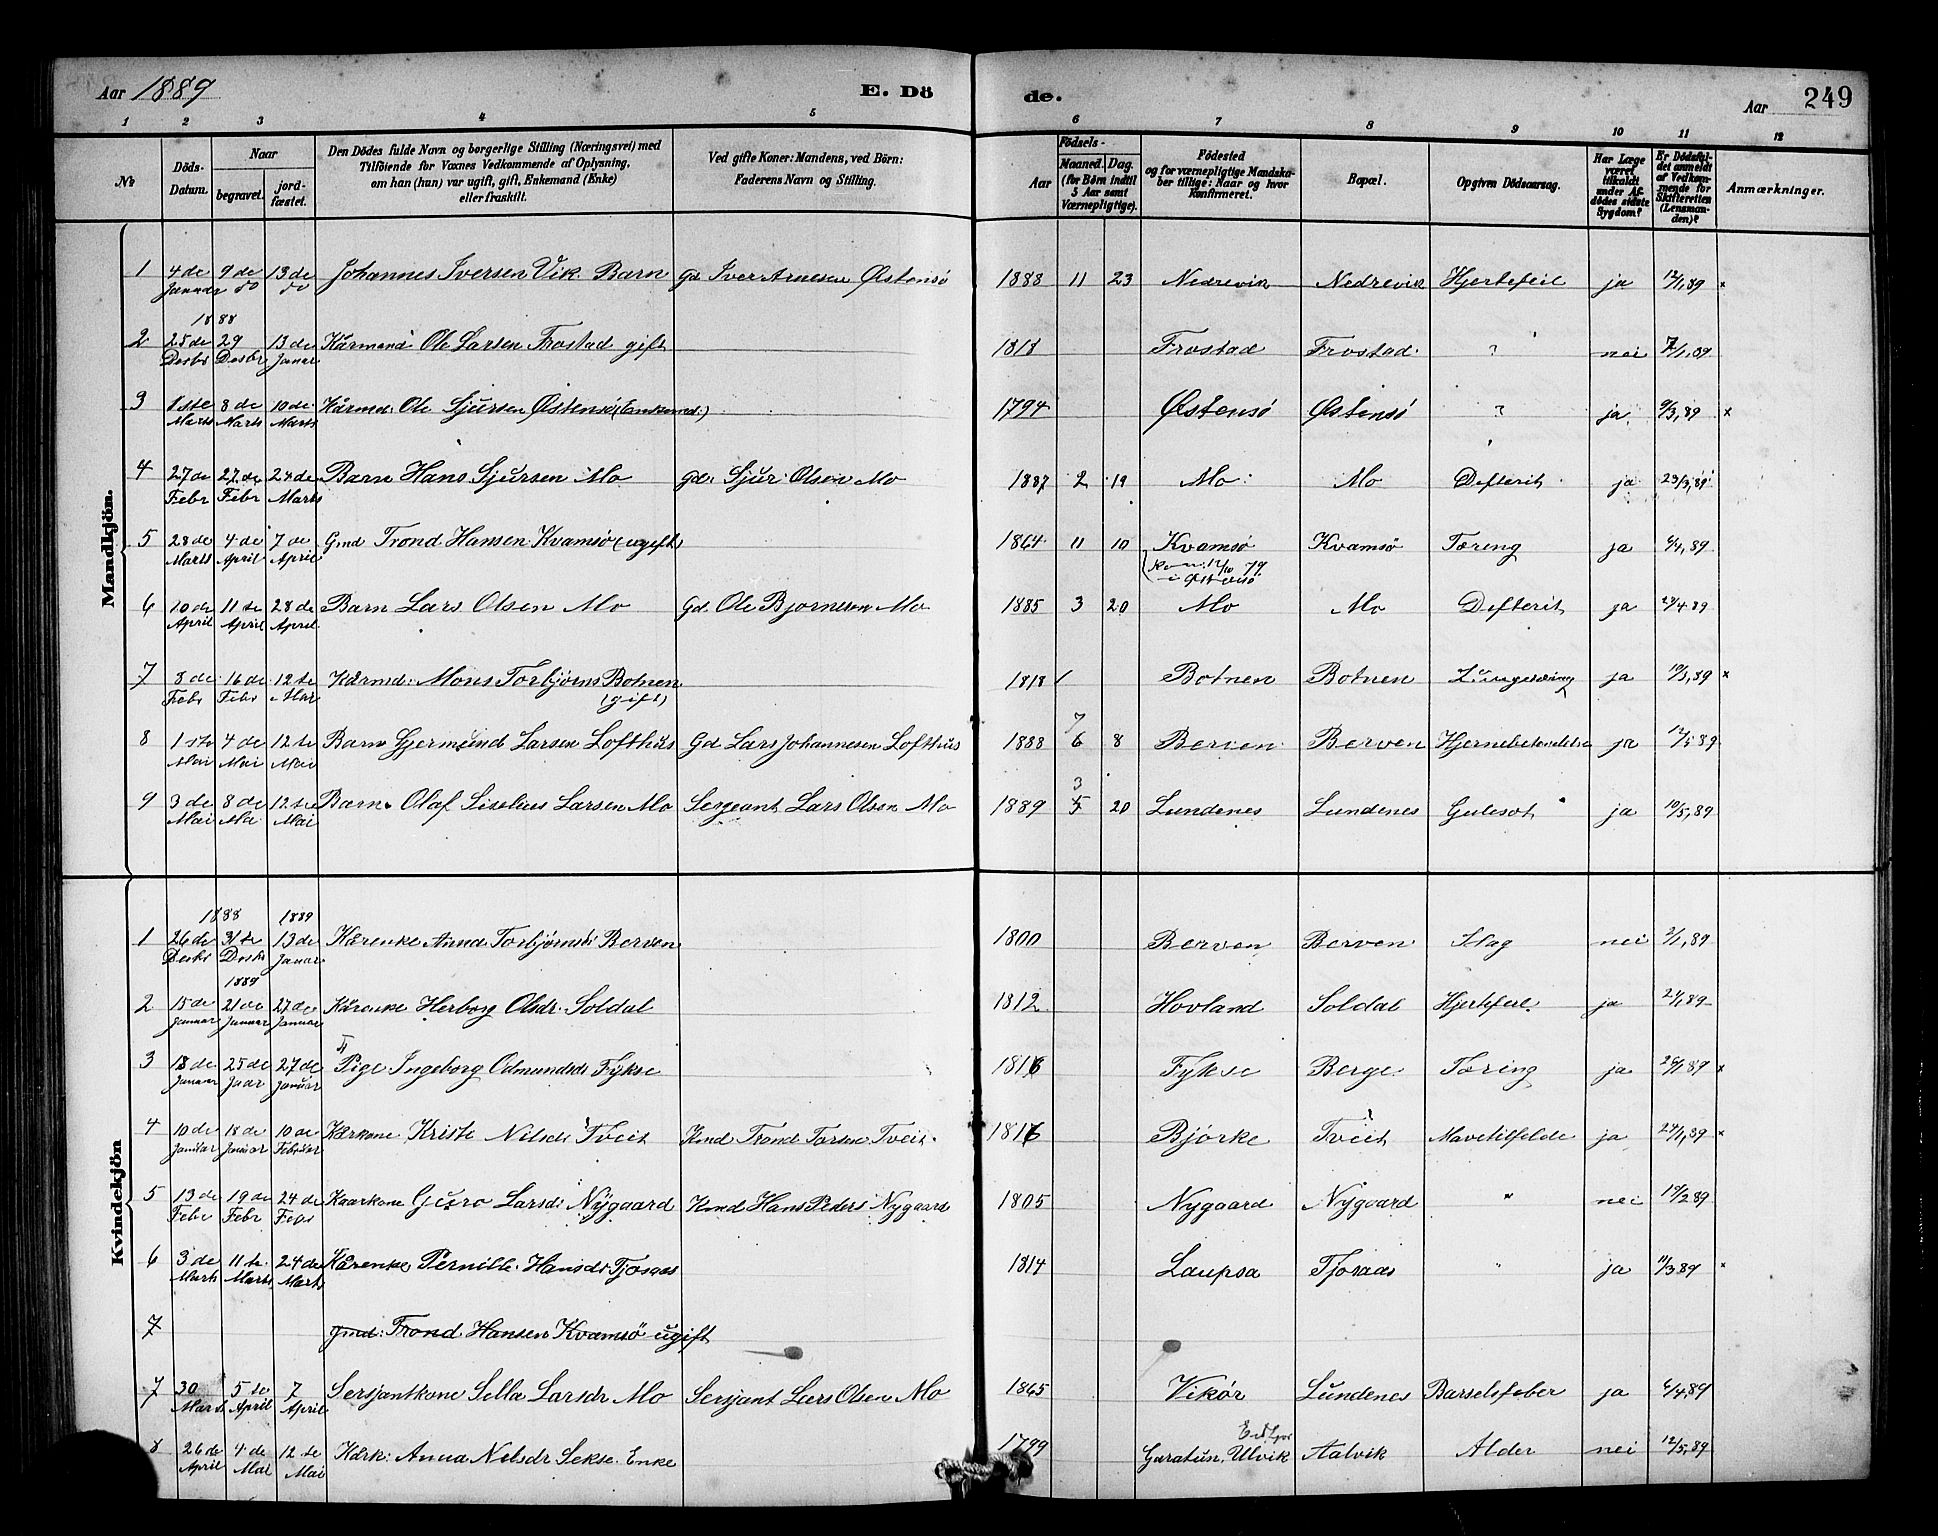 Aar 1889 E. Dö de. Aar 249
1 2 3 4 5 6 7 8 9 10 11 12
No
Döds-Datum.
Naar
begravet.
jord-fæstet.
Den Dödes fulde Navn og borgerlige Stilling (Næringsvei) med
Tilföiende for Voxnes Vedkommende af Oplysning,
om han (hun) var ugift, gift, Enkemand (Enke)
eller fraskilt.
Ved gifte Koner: Mandens, ved Börn:
Faderens Navn og Stilling.
Födsels-
Aar
Maaned. Dag.
(for Börn indtil
5 Aar samt
Værnepligtige).
Födested
og for værnepligtige Mandska-
ber tillige: Naar og hvor
Konfirmeret.
Bopæl.
Opgiven Dödsaarsag.
Har Læge
været
tilkaldt
under Af-
dödes sidste
Sygdom?
Er Dödsfal-
det anmeldt
af Vedkom-
mende for
Skifteretten
(Lensman-
den)?
Anmærkninger.
Mandkjön.
1 4de Januar 9de do 13de do Johannes Iversen Vik. Barn Gd Iver Arnesen Østensö 1888 11 23 Nedrevik Nedrevik Hjertefeil ja 12/1,89 x
1888
2 25de Desbr 29 Desbr 13de Januar Kårmand Ole Larsen Frostad gift 1818 Frostad Frostad ? nei 7/1,89
3 1ste Marts 8de Marts 10de Marts Kårmd. Ole Sjursen Østensö (Enkemd.) 1794 Østensö Østensö ? ja 9/3,89 x
4 27de Febr 27de Febr 24de Marts Barn Hans Sjursen Mo gd. Sjur Olsen Mo 1887 2 19 Mo Mo Defterit ja 23/3,89
5 28de Marts 4de April 7de April Gmd Trond Hansen Kvamsö (ugift) 1864 11 10 Kvamsö Kvamsö Tæring ja 6/4,89
Kon. 12/10 79
i Østensö
6 10de April 11te April 28de April Barn Lars Olsen Mo Gd. Ole Bjornesen Mo 1885 3 20 Mo Mo Defterit ja 28/4 89
7 8de Febr 16de Febr 12te Mai Kårmd: Mons Torbjørns Botnen (gift) 1818 Botnen Botnen ja 10/5,89 x
8 1ste Mai 4de Mai 12te Mai Barn Gjermund Larsen Lofthus Gd Lars Johannesen Lofthus 1888 7 6 8 Berven Berven Hjernebetændelse ja 12/5 89
9 3de Mai 8de Mai 12te Mai Barn. Olaf Larsen Mo Sergeant Lars Olsen Mo 1889 3 5 20 Lundenes Lundenes Gulesot ja 10/5,89
Kvindekjön
1888 1889
1 26de Desbr 31te Desbr 13de Januar Kårenke Anna Torbjørnsd. Berven 1800 Berven Berven Slag nei 2/1,89
1889
2 15de Januar 21de Januar 27de Januar Kårenke Herborg Olsdr. Soldal 1812 Hovland Soldal Hjertefeil. ja 24/1,89
3 18de Januar 25de Jaar 27de Januar Pige Ingeborg Odmundsdr Fykse 1816 Fykse Berge Tæring ja 26/1,89 x
4 10de Januar 18de Januar 10de Februar Kårkone Kriste Nilsdr Tveit Kmd Trond Larsen Tveit. 1816 Bjórke Tveit Mavetilfelde ja 24/1,89 x
5 13de Febr 19de Febr 24de Febr Kaarkone Guro Larsdr Nÿgaard Kmd Hans Peders Nygaard 1805 Nygaard Nygaard " nei 19/2 89
6 3de Marts 11te Marts 24de Marts Kårenke Pernille Hansdr Tjoraas 1814 Laupsa Tjoraas " ja 11/3 89 x
7 gmd: Trond Hansen Kvamsö ugift
7 30 Marts 5te April 7 April Sersjantkone Sella Larsdr Mo Sersjant Lars Olsen Mo 1865 Vikør Lundenes Barselsfeber ja 6/4,89
8 26de April 4de Mai 12te Mai Kårk. Anna Nelsdr Sekse. Enke 1799 Garatun, Ulvik Aalvik Alder nei 12/5,89